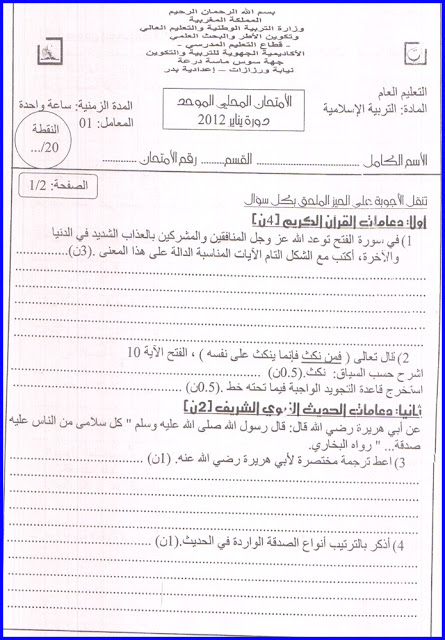 بسم الله الرحمان الرحيم
المملكة المغربية
وزارة التربية الوطنية والتعليم العالي
وتكوين الأطر والبحث العلمي
- قطاع التعليم المدرسي -
الأكاديمية الجهوية للتربية والتكوين
جهة سوس ماسة درعة
نيابة ورزازات – إعدادية بدر
التعليم العام
المادة: التربية الإسلامية
الامتحان المحلي الموحد
دورة يناير 2012
المدة الزمنية: ساعة واحدة
المعامل: 01
النقطة
.../20
الاسم الكامل ............... القسم......... رقم الامتحان ............
الصفحة: 1/2
تنقل الأجوبة على الحيز الملحق بكل سؤال
أولا: دعامات القرآن الكريم [4ن]
1) في سورة الفتح توعد الله عز وجل المنافقين والمشركين بالعذاب الشديد في الدنيا
والآخرة، أكتب مع الشكل التام الآيات المناسبة الدالة على هذا المعنى .(3ن)...........
2) قال تعالى ( فمن نكث فإنما ينكث على نفسه ) ، الفتح الآية 10
اشرح حسب السياق: نكث.(0.5ن) ...............
استخرج قاعدة التجويد الواجبة فيما تحته خط .(0.5ن) ...............
ثانيا: دعامات الحديث النبوي الشريف [2ن]
عن أبي هريرة رضي الله قال: قال رسول الله صلى الله عليه وسلم " كل سلامى من الناس عليه
صدقة... " رواه البخاري.
3) اعط ترجمة مختصرة لأبي هريرة رضي الله عنه. (1ن) ...............
4) أذكر بالترتيب أنواع الصدقة الواردة في الحديث.(1ن) ...............